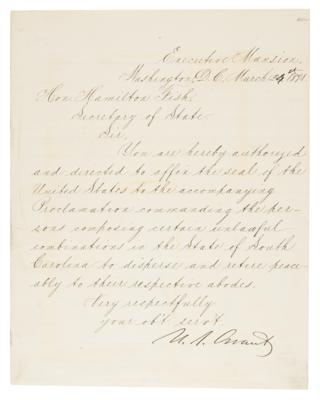 Executive Mansion,
Washington, D.C. March 24th 1871
Hon Hamilton Fish,
Secretary of State
Sir,
You are hereby authorized
and directed to affix the seal of the
United States to the accompanying
Proclamation commanding the per-
sons composing certain unlawful
combinations in the State of South
Carolina to disperse and retire peace-
ably to their respective abodes.
Very respectfully
your obt servt
U. S. Grant